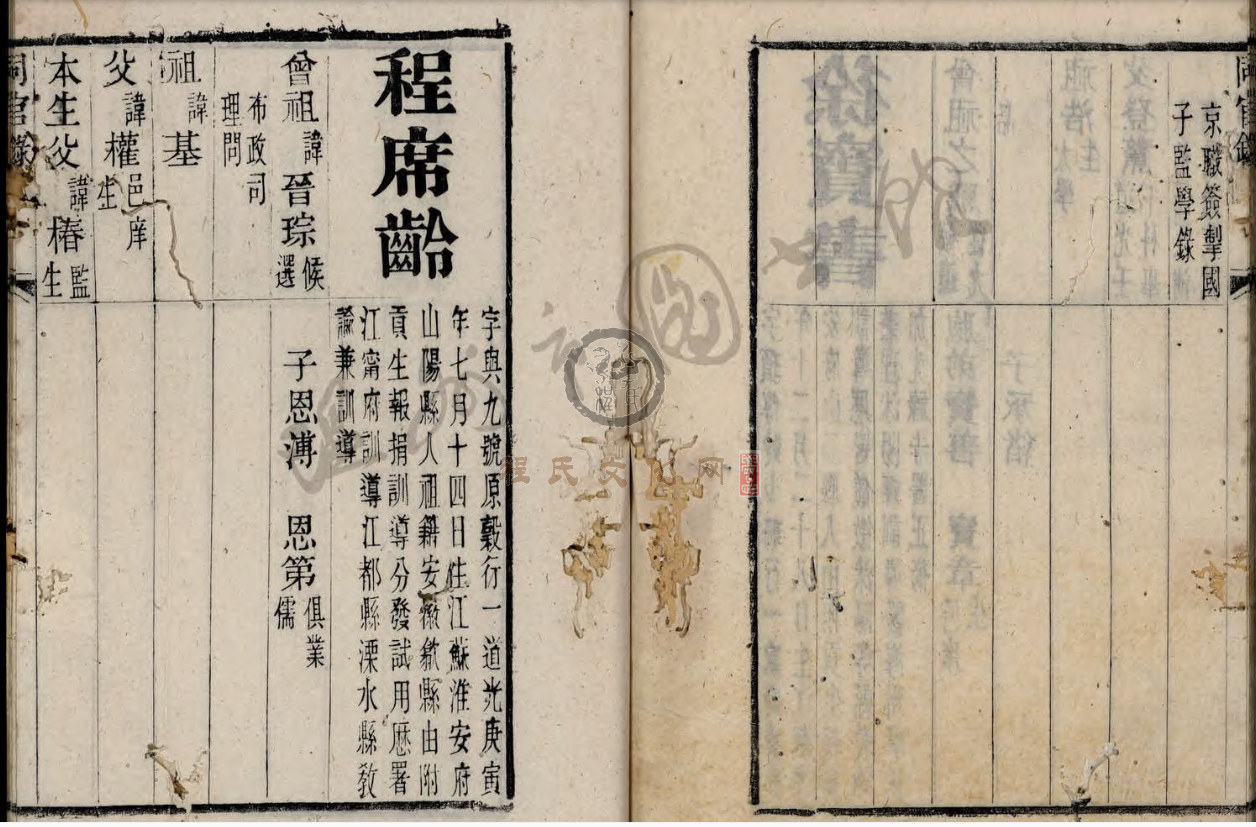 同官錄
京職簽掣國
子監學錄
程席齡
字與九號原穀行一道光庚寅
年七月十四日生江蘇淮安府
山陽縣人祖籍安徽歙縣由附
貢生報捐訓導分發試用歷署
江甯府訓導江都縣溧水縣教
諭兼訓導
曾祖諱晉琮候選
布政司
理問
子恩溥 恩第俱業儒
祖諱基
父諱權邑庠生
本生父諱椿監生
同官錄
程氏文化网